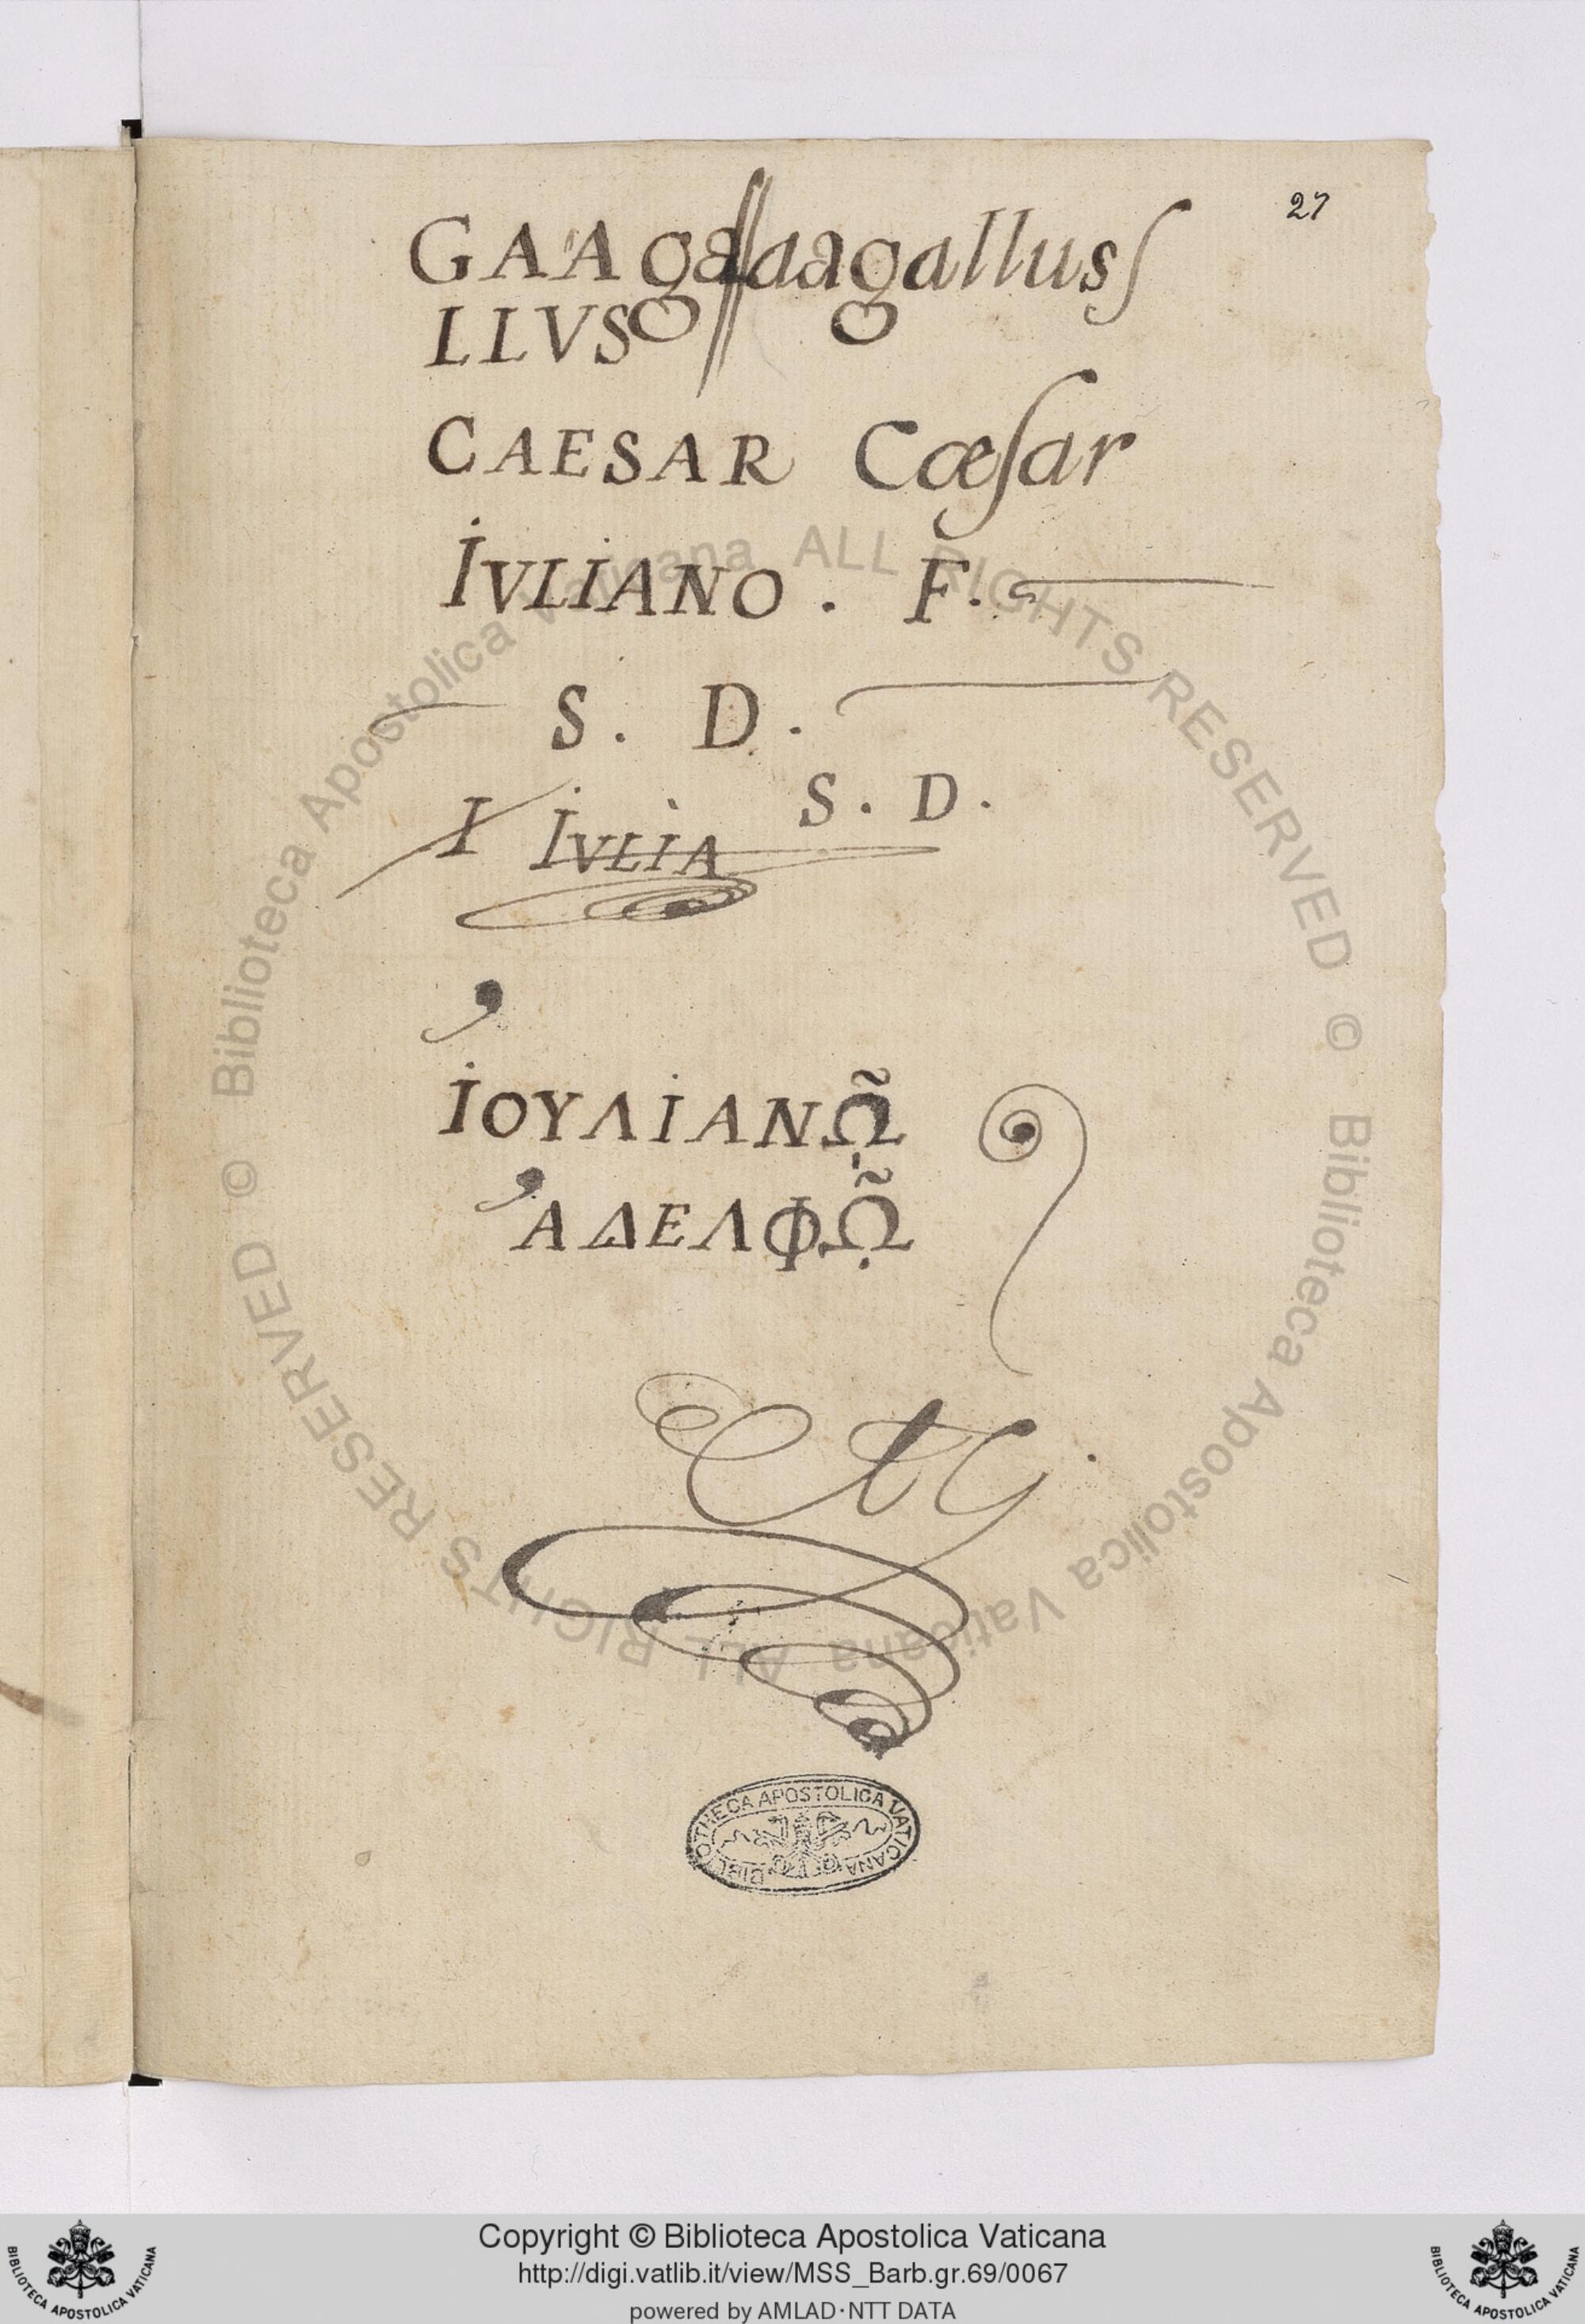 27
GAA ga aagallusſ
LLVS
CAESAR Cæſar
IVLIANO . F.
S . D .
S . D .
I IVLIA
ἸΟΥΛΙΑΝῼ͂
ἈΔΕΛΦῼ͂
BIBLIOTHECA APOSTOLICA VATICANA
© Biblioteca Apostolica Vaticana ALL RIGHTS RESERVED
© Biblioteca Apostolica Vaticana ALL RIGHTS RESERVED
Copyright © Biblioteca Apostolica Vaticana
http://digi.vatlib.it/view/MSS_Barb.gr.69/0067
powered by AMLAD·NTT DATA
BIBLIOTECA APOSTOLICA VATICANA
BIBLIOTECA APOSTOLICA VATICANA